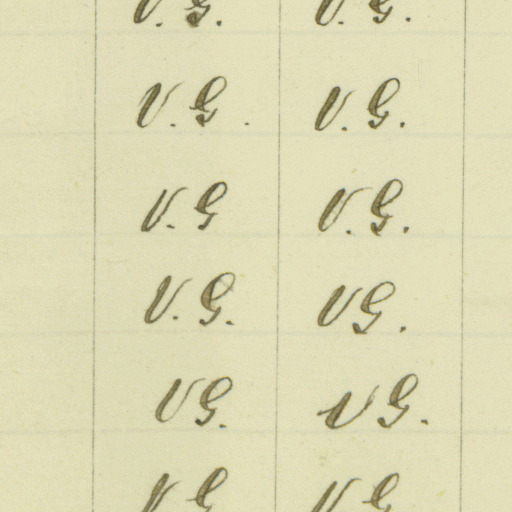 V. G. V. G.
V. G. V. G.
V. G V. G.
V. G. V G.
V G. V G.
V G V G